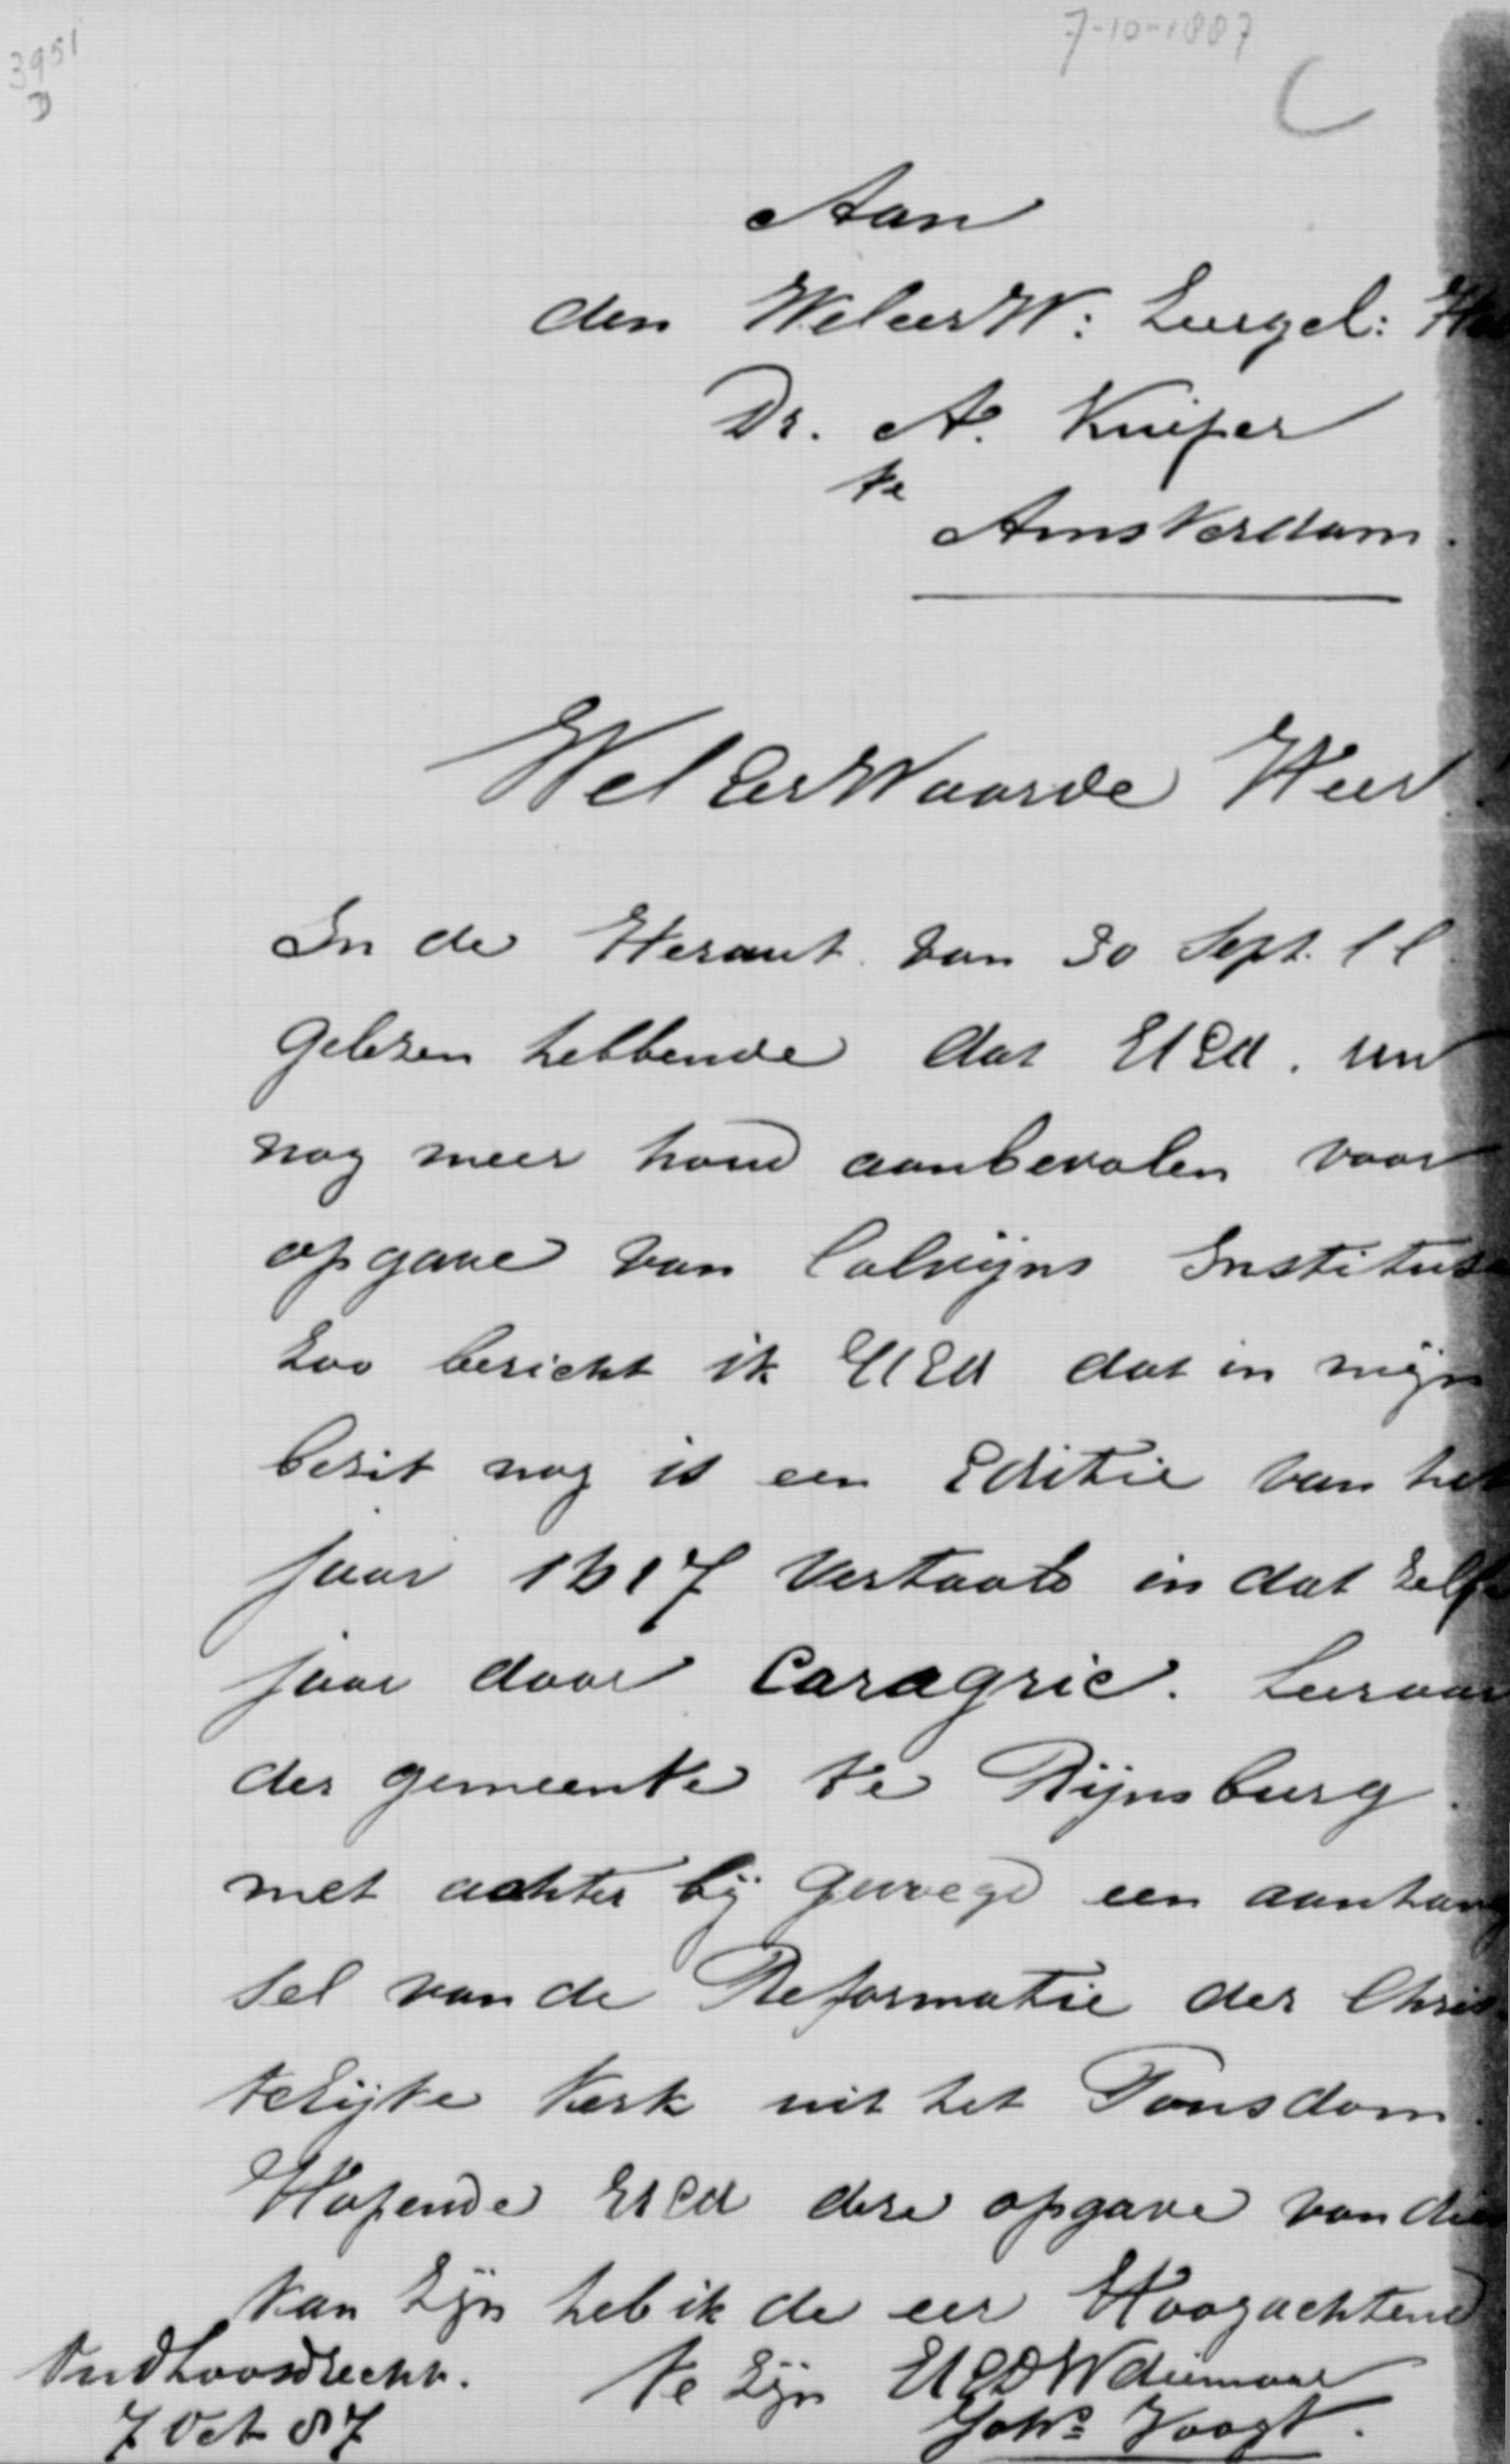 7-10-1887
3951
D
C
Aan
den WeleerW: Leergel:
Dr. A. Kuiper
te
Amsterdam.
WelEerWaarde Heer
In de Heraut van 30 Sept. ll
gelezen hebbende dat UEd. zu
nog meer houd aanbevolen voor
opgave van Calvijns Institutie
Zoo bericht ik UEd dat in mijn
bezit nog is een Editie van het
jaar 1617 Vertaald in dat zelfde
jaar door Caragric. Leeraar
der gemeente te Rijnsburg.
met achter bij gevoegd een aanhang
sel van de Reformatie der Chris
telijke Kerk uit het Pausdom.
Hopende UEd deze opgave van dien
kan zijn heb ik de eer Hoogachtend
te zijn UEDWdienaar
Joh<sup>s</sup> Voogt.
Oud Loosdrecht.
7 Oct 87